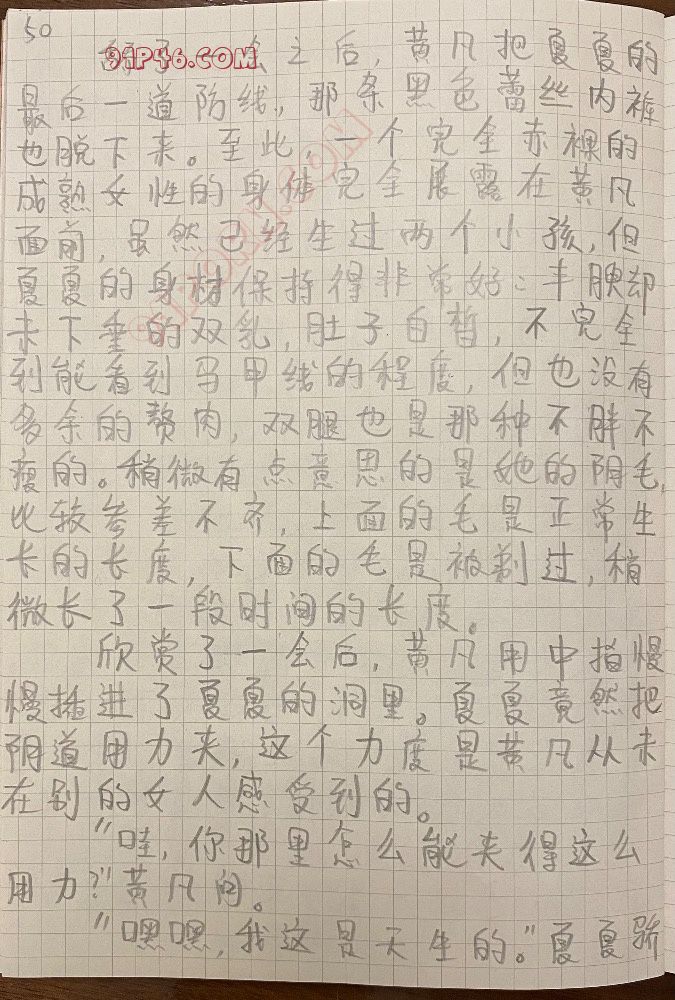 50
91P46.COM
之后，黄凡把夏夏的
最后一道防线，那条黑色蕾丝内裤
也脱下来。至此，一个完全赤裸的
成熟女性的身体完全展露在黄凡
面前，虽然已经生过两个小孩，但
夏夏的身材保持得非常好：丰腴却
未下垂的双乳，肚子白皙，不完全
到能看到马甲线的程度，但也没有
多余的赘肉，双腿也是那种不胖不
瘦的。稍微有点意思的是她的阴毛，
比较参差不齐，上面的毛是正常生
长的长度，下面的毛是被剃过，稍
微长了一段时间的长度。
欣赏了一会后，黄凡用中指慢
慢插进了夏夏的洞里。夏夏竟然把
阴道用力夹，这个力度是黄凡从未
在别的女人感受到的。
“哇，你那里怎么能夹得这么
用力？”黄凡问。
“嘿嘿，我这是天生的。”夏夏骄